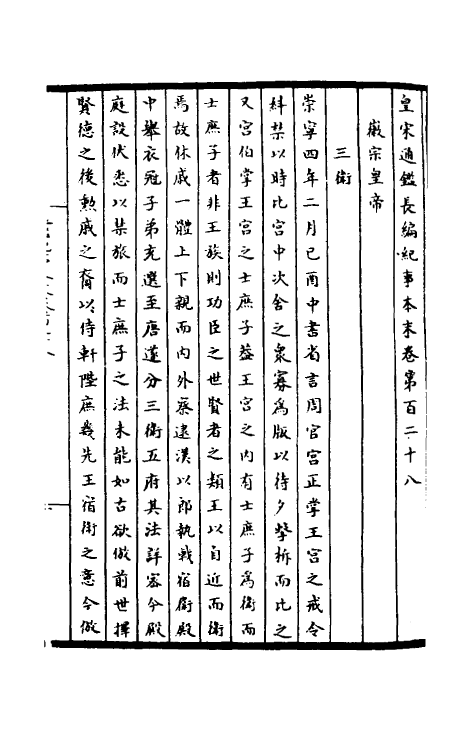 皇宋通鑑長編紀事本末卷第百二十八
徽宗皇帝
三衛
崇寧四年二月己酉中書省言周官宮正掌王宮之戒令
糾禁以時比宮中次舍之衆寡為版以待夕擊柝而比之
又宮伯掌王宮之士庶子蓋王宮之内有士庶子為衛而
士庶子者非王族則功臣之世賢者之類王以自近而衛
焉故休戚一體上下親而内外察逮漢以郎執戟宿衛殿
中舉衣冠子弟充選至唐遂分三衛五府其法詳密今殿
庭設仗悉以禁旅而士庶子之法未能如古欲倣前世擇
賢德之後勲戚之裔以侍軒陛庶幾先王宿衛之意今倣